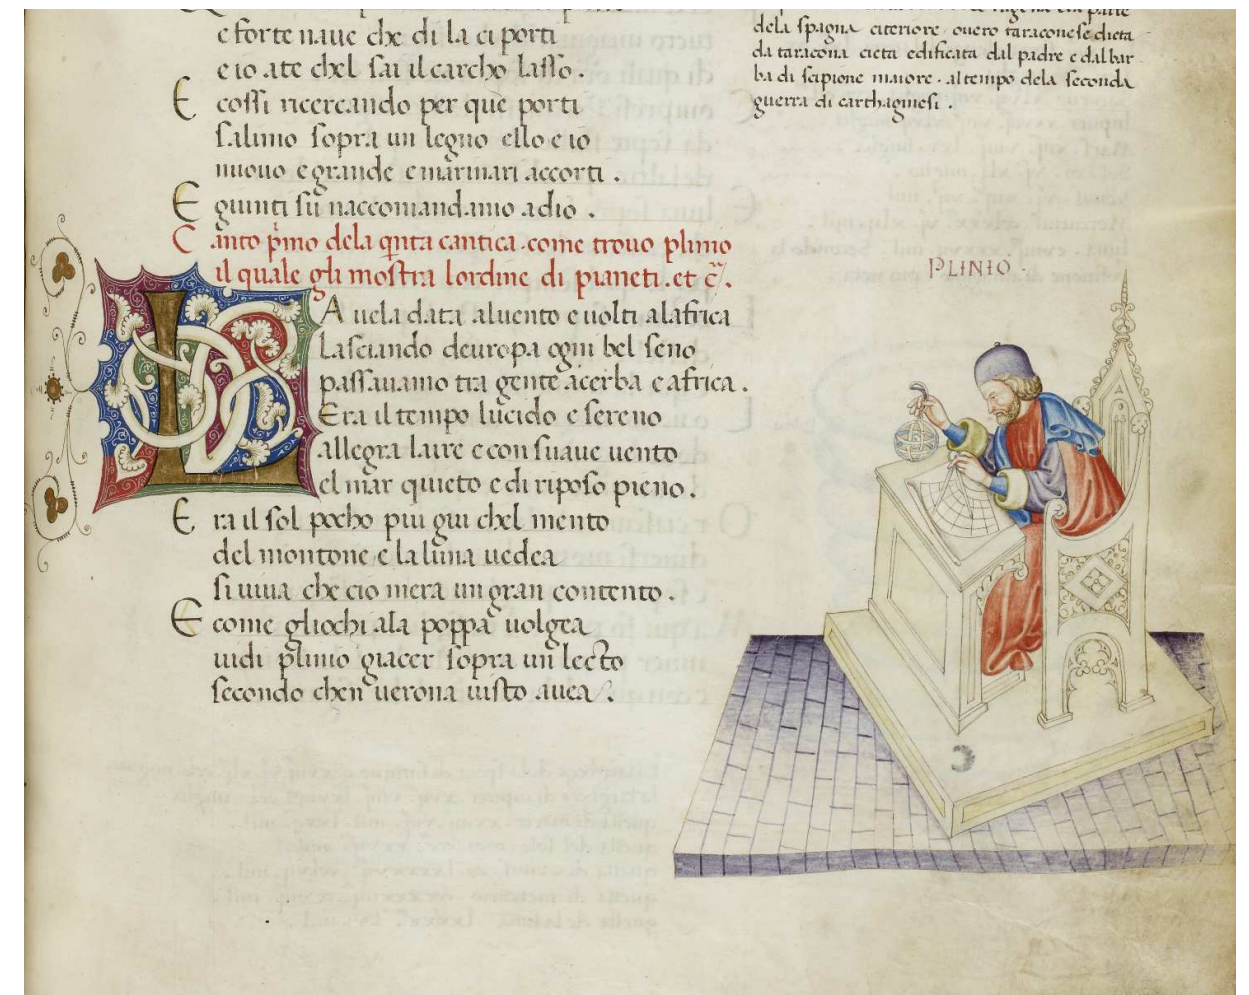 e forte naue che di la ci porti
e io .a te chel sai il carcho lasso .
E cossi ricercando per que porti
salimo sopra un legno ello e io
nuouo e grande e marinari accorti .
E giunti sù naccomandamo a dio .
Canto p̃mo dela q̃nta cantica .come trouo plinio
il quale gli mostra lordine di pianeti .et c̃.
LA uela data al uento e uolti alafrica
Lasciando deuropa ogni bel seno
passauamo tra gente acerba e africa .
Era il tempo lucido e sereno
allegra laire e con suaue uento
el mar quieto e di riposo pieno .
Era il sol pocho più giu chel mento
del montone e la luna uedea
si uiua che cio mera un gran contento .
E come gliochi ala poppa uolgea
uidi plinio giacer sopra un lecto
secondo chen uerona uisto auea .
dela spagna citeriore ouero taraconese dicta
da taracona cieta edificata dal padre e dal bar-
ba di scipione maiore . al tempo dela seconda
guerra di carthaginesi .
PLINIO .